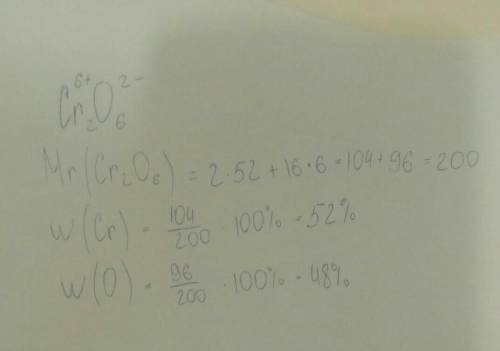 Cr₂⁶⁺O₆²⁻
Mr(Cr₂O₆) = 2·52 + 16·6 = 104 + 96 = 200
w(Cr) = 104/200 · 100% = 52%
w(O) = 96/200 · 100% = 48%